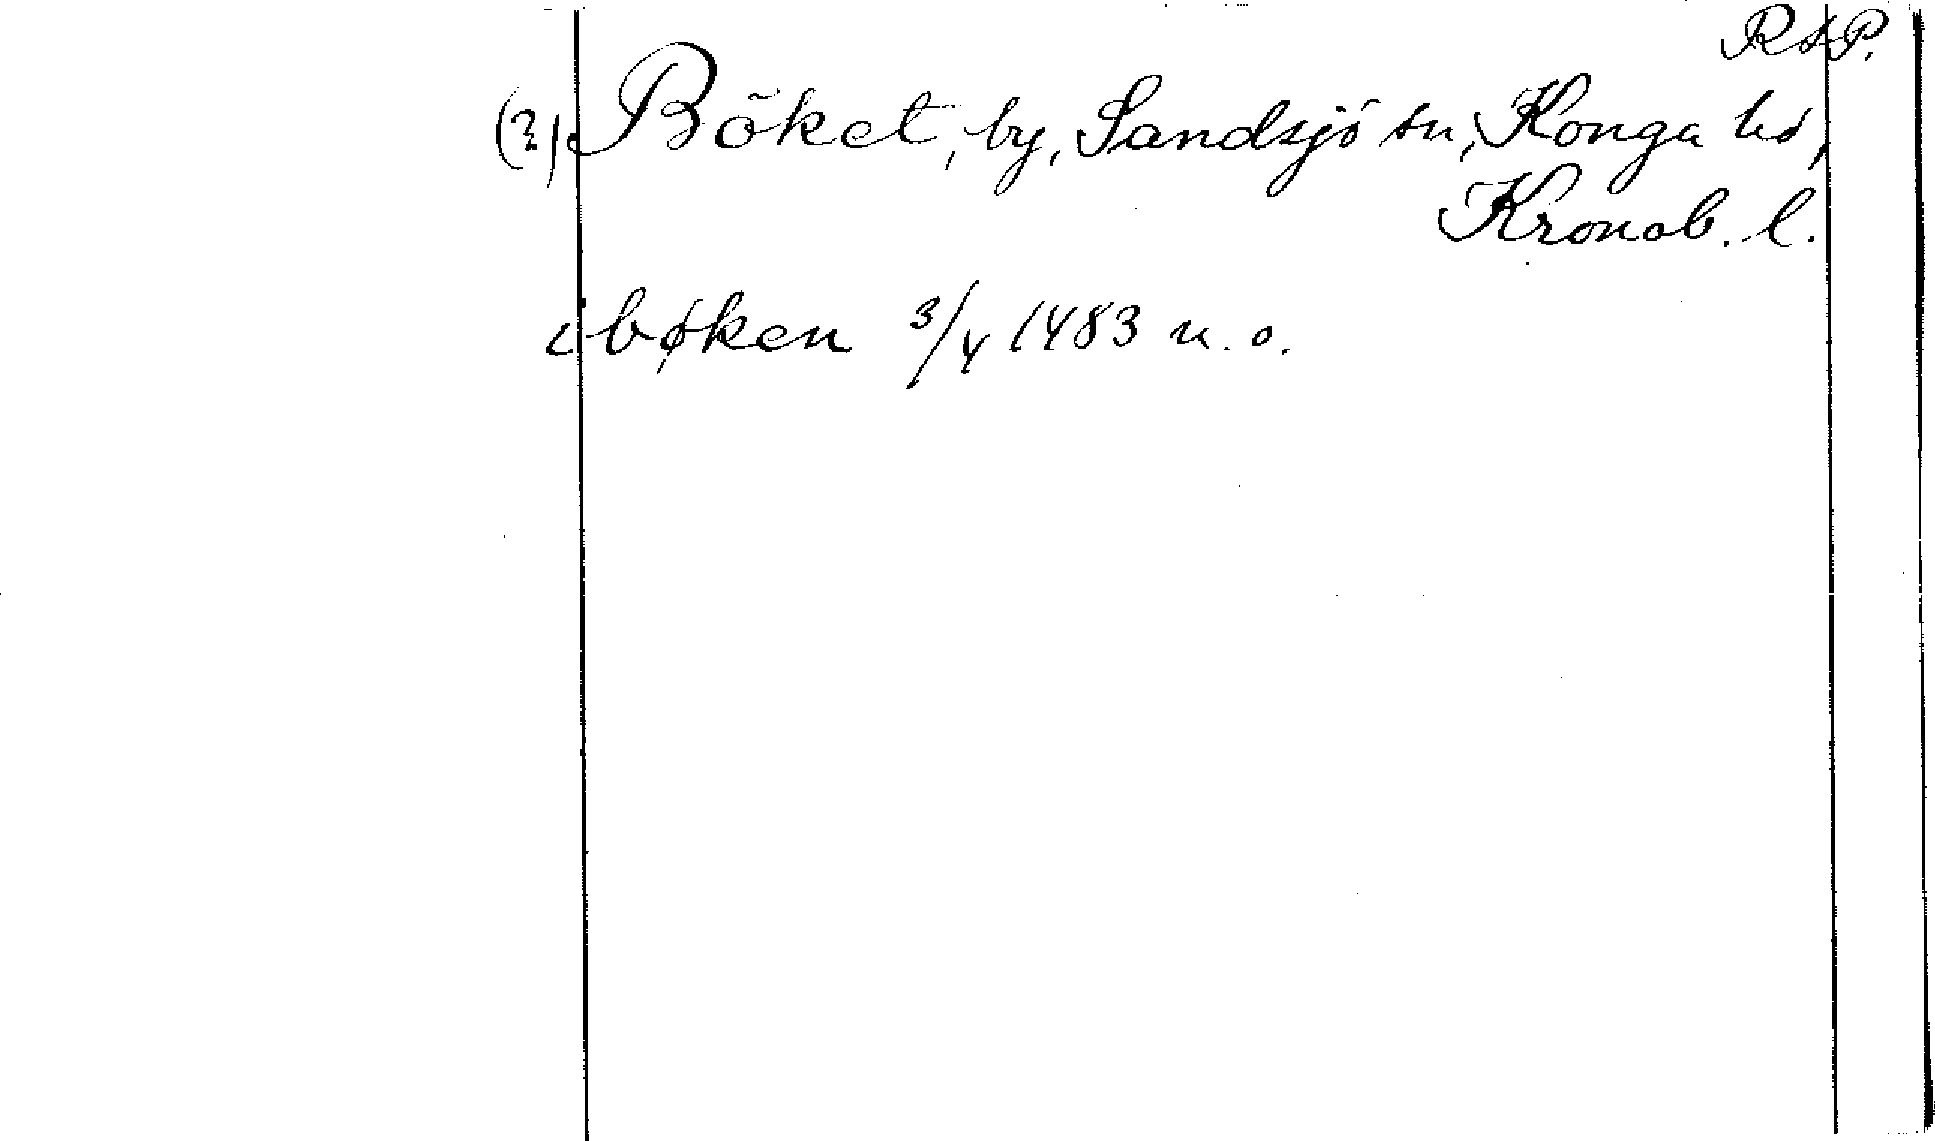 RAP.
(?) Böket, by, Sandsjö sn, Konga hd,
Kronob. l.
i bøken 3/4 1483 n. o.